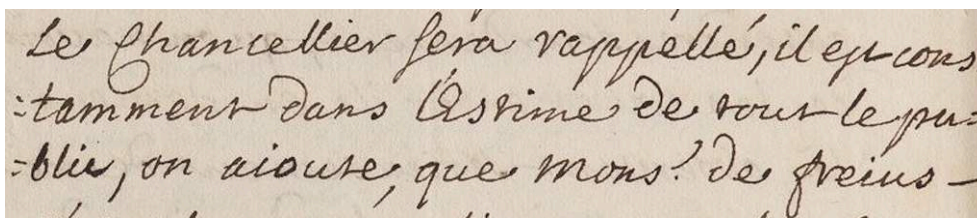 Le Chancellier sera rappellé, il est cons
=tamment dans l'Estime de tout le pu=
=blic, on aioute, que Mons.r de freius